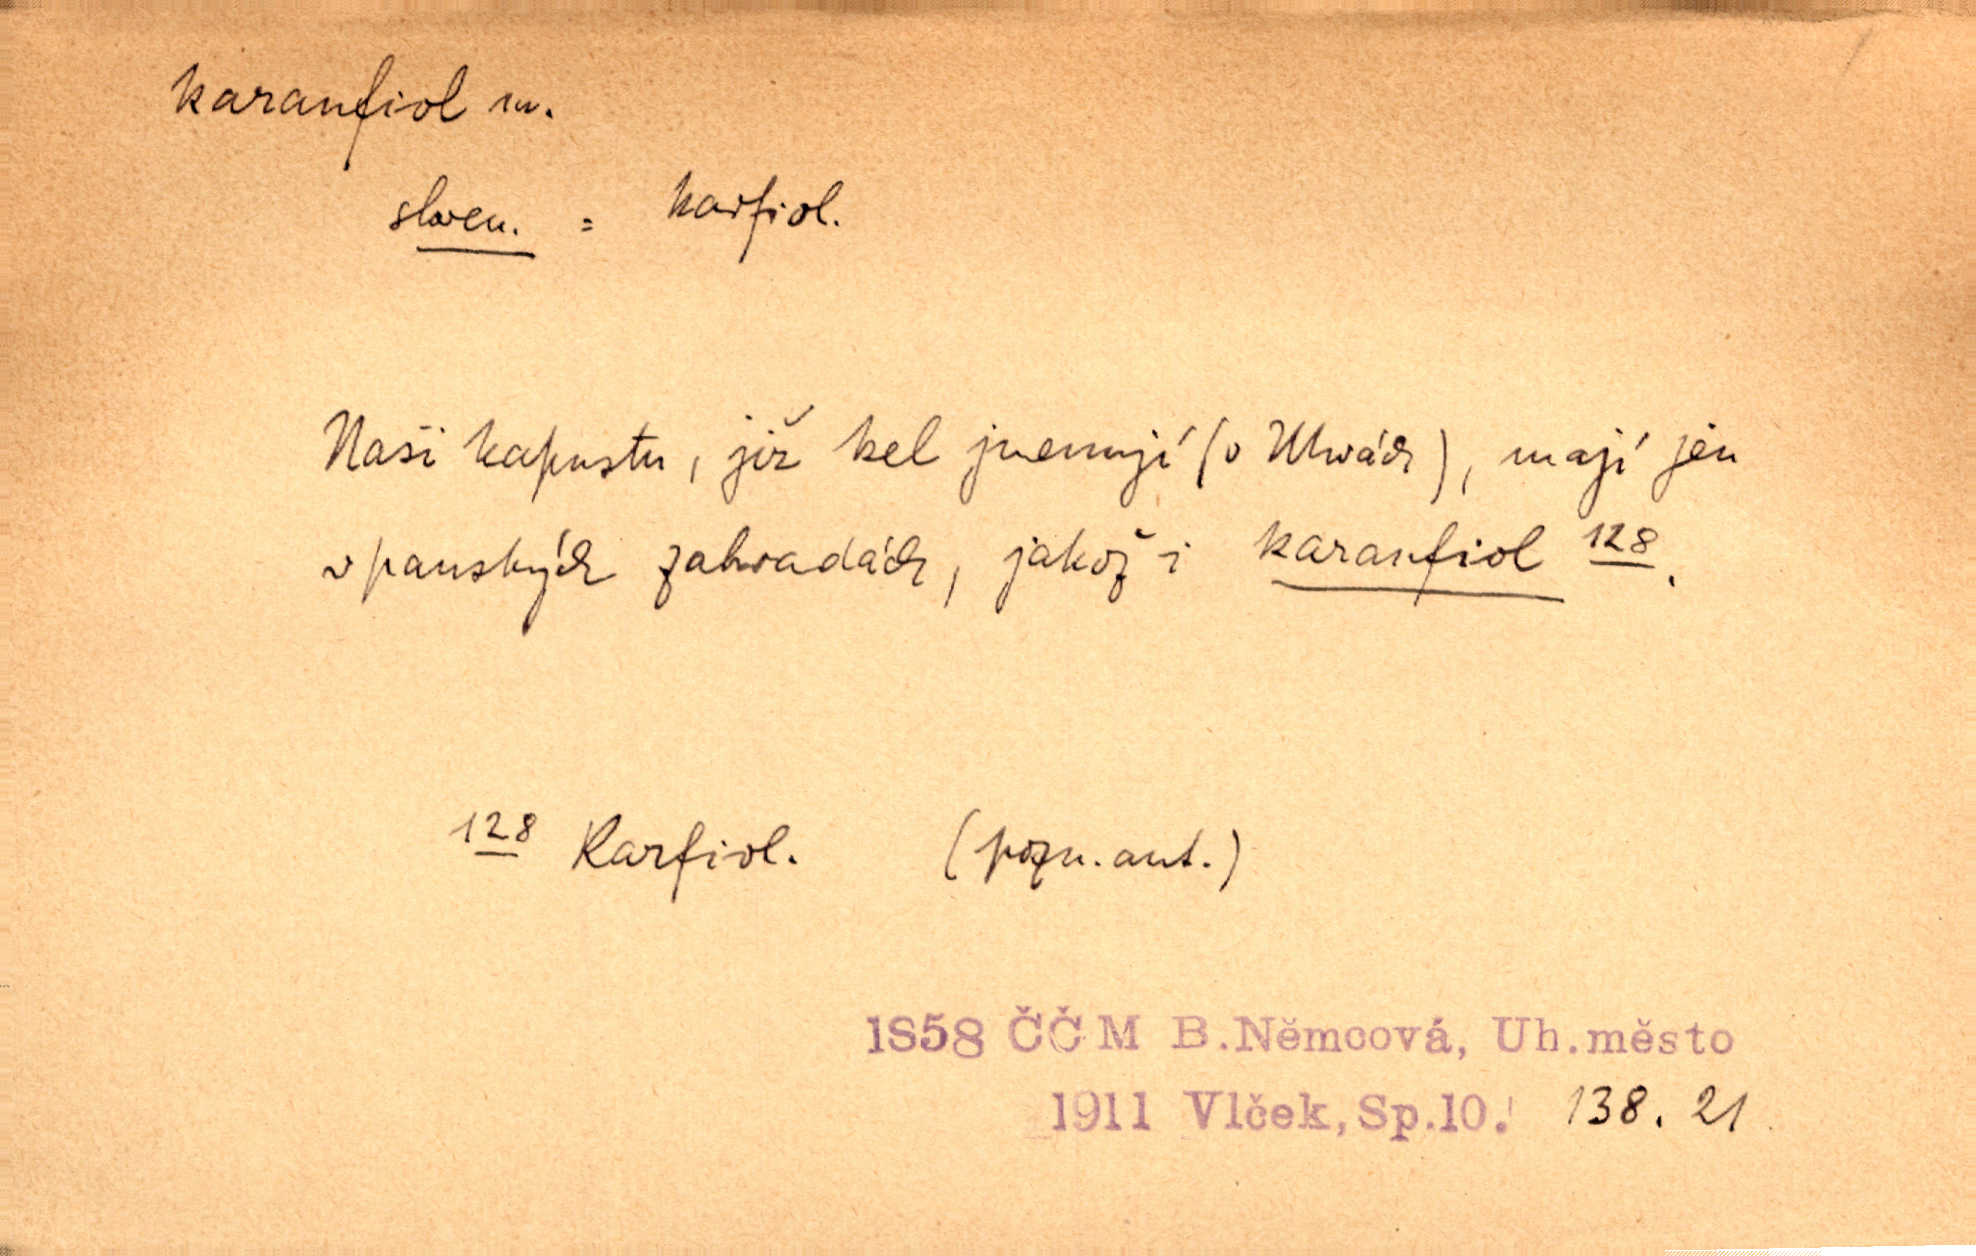 karanfiol m.
sloven. = karfiol.
Naši kapustu, již kel jmenují (v Uhrách), mají jen
v panských zahradách, jakož i karanfiol 128.
128 Karfiol. (pozn. aut.)
1858 ČČM B.Němcová, Uh.město
1911 Vlček, Sp.10. 138. 21